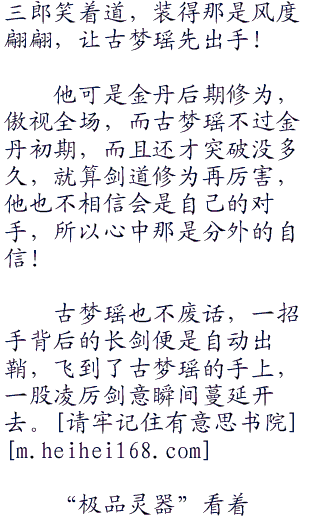 三郎笑着道，装得那是风度
翩翩，让古梦瑶先出手！
他可是金丹后期修为，
傲视全场，而古梦瑶不过金
丹初期，而且还才突破没多
久，就算剑道修为再厉害，
他也不相信会是自己的对
手，所以心中那是分外的自
信！
古梦瑶也不废话，一招
手背后的长剑便是自动出
鞘，飞到了古梦瑶的手上，
一股凌厉剑意瞬间蔓延开
去。[请牢记住有意思书院]
[m.heihei168.com]
“极品灵器”看着